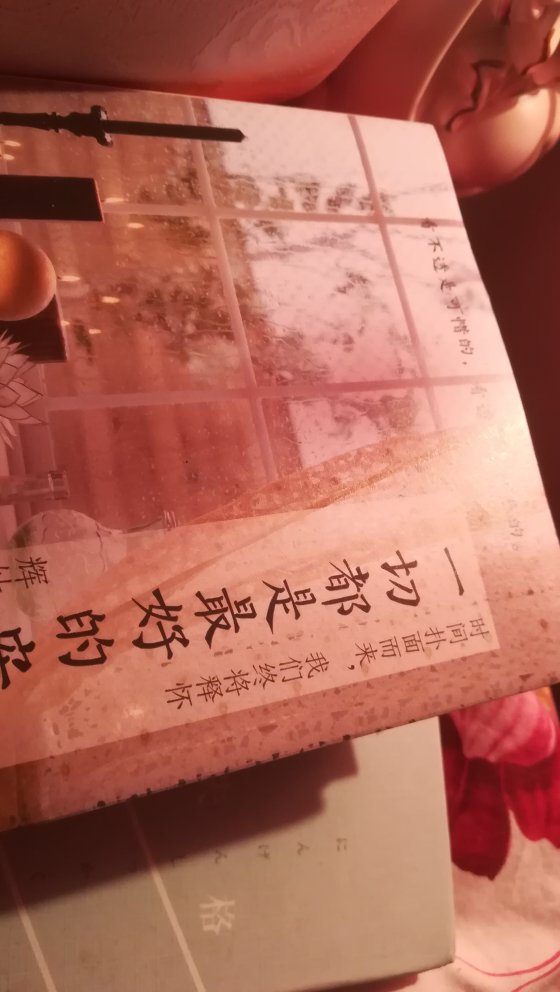 不过是可惜的，
一切都是最好的
时间扑面而来，我们终将释怀
辉
にんげん
格